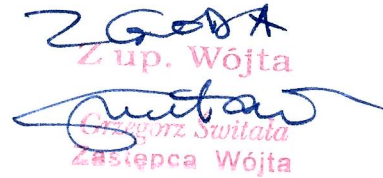 ZGODA
Z up. Wójta
Grzegorz Świtała
Zastępca Wójta